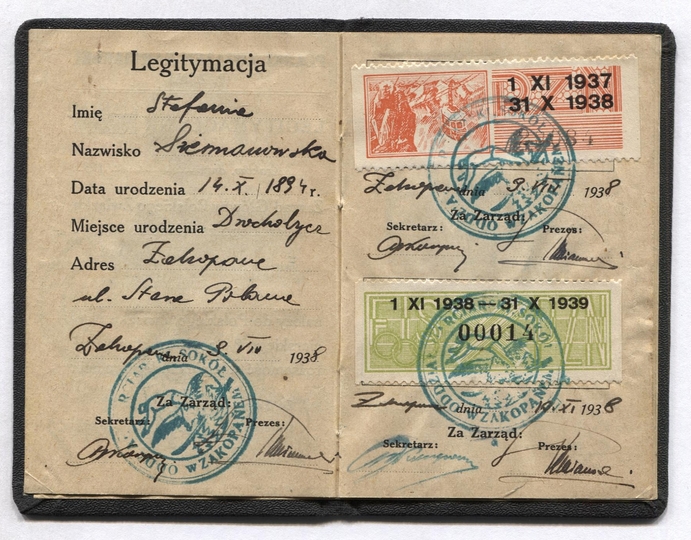 Legitymacja
Imię Stefania
Nazwisko
Data urodzenia 14. X. 1894 r.
Miejsce urodzenia Drohobycz
Adres Zakopane
ul. Stara Polana
Zakopane dnia 3. VIII 1938
Za Zarząd:
Sekretarz: Prezes:
SOKÓŁ W ZAKOPANEM ODDZIAŁ
1 XI 1937
31 X 1938
Zakopane dnia 3. VIII 1938
Za Zarząd:
Sekretarz: Prezes:
1 XI 1938 — 31 X 1939
00014
Zakopane dnia XI 1938
Za Zarząd:
Sekretarz: Prezes: